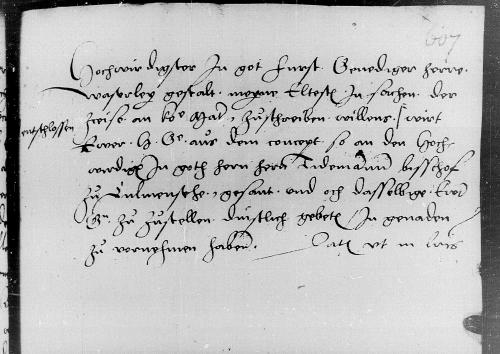 607
Hochwirdigster In got furst. Genediger herre.
waserley gestalt. meyne Eltesten In sachen der
zeise an ko Mat, zuschreiben willens, wirt
entschlossen
Ewer. G. aus dem concept so an den Hoch
wirdigen In goth hern hern Tidemann bisschof
zu Culmensehe, gesant. und och dasselbige Ewer
G. zu zustellen dinstlich gebeten In genaden
zu vornehmen haben. Dat ut in